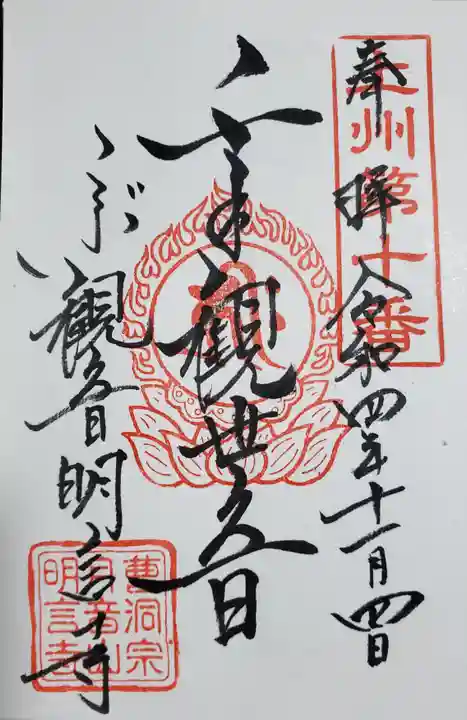 州第十番
奉拝 令和四年十一月四日
千手觀世音
観音 明言寺
曹洞宗
音山
明言寺